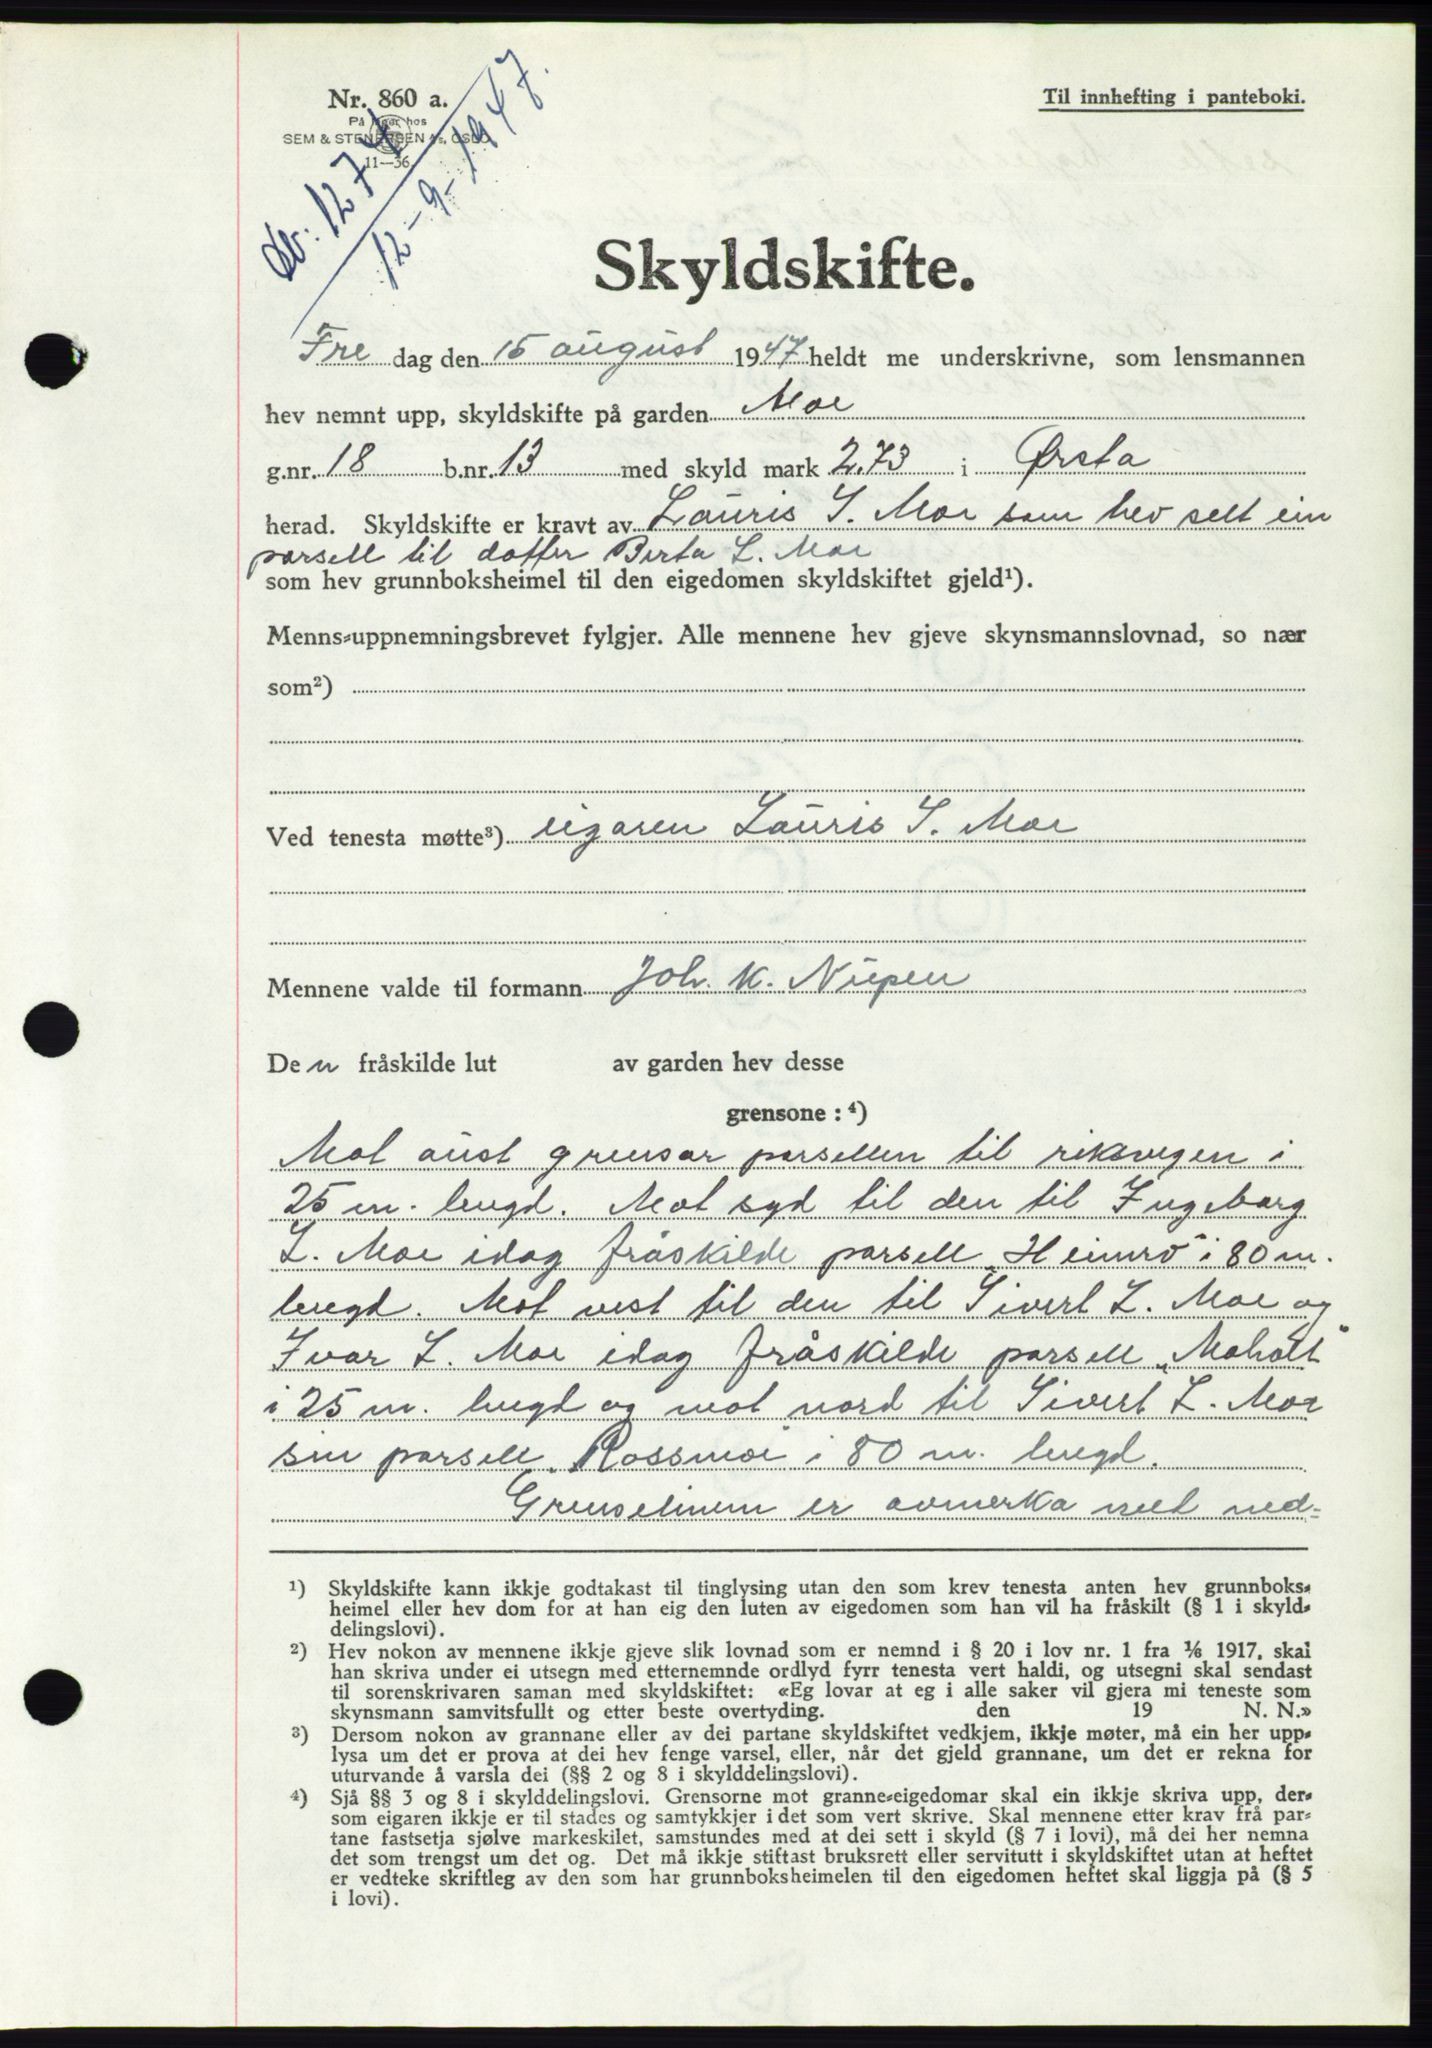 Nr. 860 a.
På lager hos
SEM & STENERSEN A/S, OSLO
11—36.
Til innhefting i panteboki.
db. 1274
12-9-1947.
Skyldskifte.
Fre dag den 15 august 1947 heldt me underskrivne, som lensmannen
hev nemnt upp, skyldskifte på garden Moe
g.nr. 18 b.nr. 13 med skyld mark 2.73 i Ørsta
herad. Skyldskifte er kravt av Lauris S. Moe som hev selt ein
parsell til dotter Berta L. Moe
som hev grunnboksheimel til den eigedomen skyldskiftet gjeld¹).
Menns-uppnemningsbrevet fylgjer. Alle mennene hev gjeve skynsmannslovnad, so nær
som²)
Ved tenesta møtte³) eigaren Lauris S. Moe
Mennene valde til formann Joh. K. Nupen
Den fråskilde lut av garden hev desse
grensone : ⁴)
Mot aust grensar parsellen til riksvegen i
25 m. lengd. Mot syd til den til Ingeborg
L. Moe idag fråskilde parsell „Heimro" i 80 m.
lengd. Mot vest til den til Sivert L. Moe og
Ivar L. Moe idag fråskilde parsell „Moholt"
i 25 m. lengd og mot nord til Sivert L. Moe
sin parsell „Rossmoe" i 80 m. lengd.
Grenselinene er avmerka med ned-
¹) Skyldskifte kann ikkje godtakast til tinglysing utan den som krev tenesta anten hev grunnboks-
heimel eller hev dom for at han eig den luten av eigedomen som han vil ha fråskilt (§ 1 i skyld-
delingslovi).
²) Hev nokon av mennene ikkje gjeve slik lovnad som er nemnd i § 20 i lov nr. 1 fra 1/6 1917, skal
han skriva under ei utsegn med etternemnde ordlyd fyrr tenesta vert haldi, og utsegni skal sendast
til sorenskrivaren saman med skyldskiftet: «Eg lovar at eg i alle saker vil gjera mi teneste som
skynsmann samvitsfullt og etter beste overtyding. den 19 N. N.»
³) Dersom nokon av grannane eller av dei partane skyldskiftet vedkjem, ikkje møter, må ein her upp-
lysa um det er prova at dei hev fenge varsel, eller, når det gjeld grannane, um det er rekna for
uturvande å varsla dei (§§ 2 og 8 i skylddelingslovi).
⁴) Sjå §§ 3 og 8 i skylddelingslovi. Grensorne mot granne-eigedomar skal ein ikkje skriva upp, der-
som eigaren ikkje er til stades og samtykkjer i det som vert skrive. Skal mennene etter krav frå par-
tane fastsetja sjølve markeskilet, samstundes med at dei sett i skyld (§ 7 i lovi), må dei her nemna
det som trengst um det og. Det må ikkje stiftast bruksrett eller servitutt i skyldskiftet utan at heftet
er vedteke skriftleg av den som har grunnboksheimelen til den eigedomen heftet skal liggja på (§ 5
i lovi).